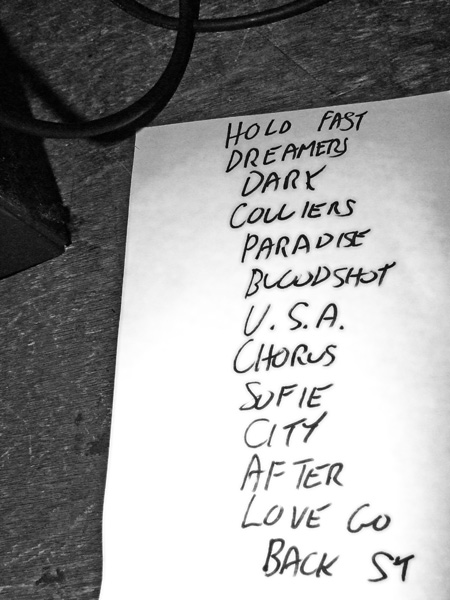 HOLD FAST
DREAMERS
DARK
COLLIERS
PARADISE
BLOODSHOT
U.S.A.
CHORUS
SOFIE
CITY
AFTER
LOVE GO
BACK ST